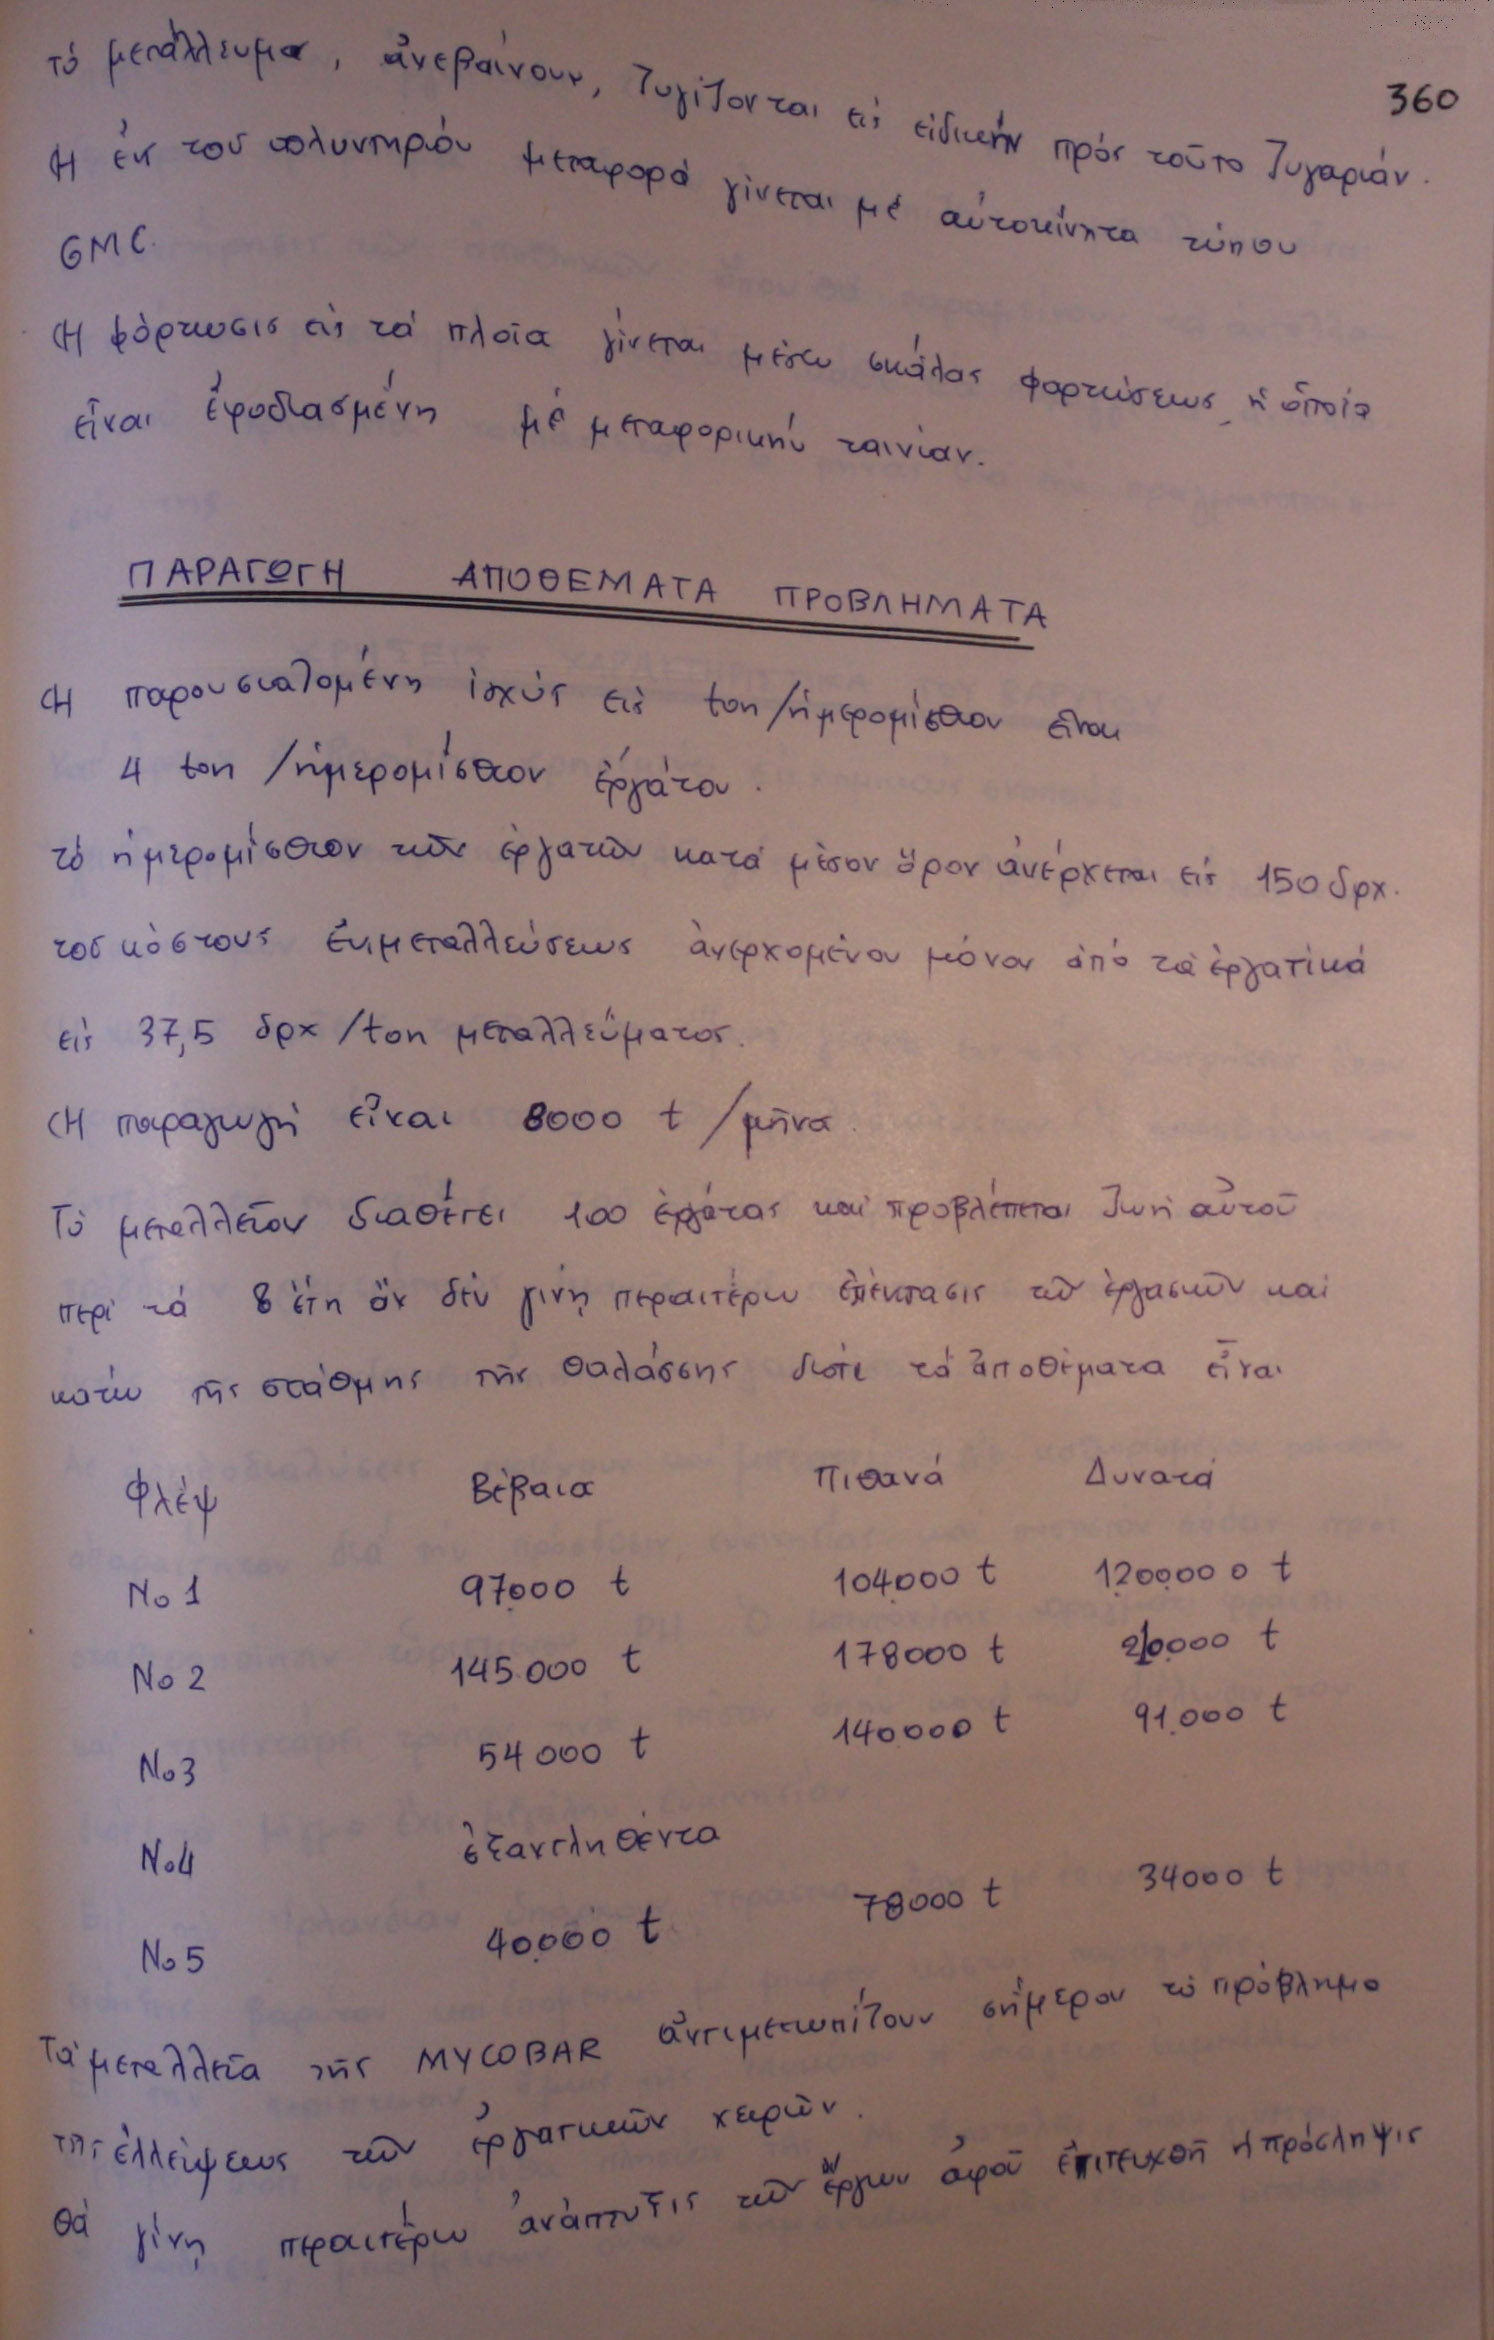 360
τό μετάλλευμα, ἀνεβαίνουν, ζυγίζονται εἰς εἰδικήν πρός τοῦτο ζυγαριάν.
Ἡ ἐκ τοῦ πλυντηρίου μεταφορά γίνεται μέ αὐτοκίνητα τύπου
GMC.
Ἡ φόρτωσις εἰς τά πλοῖα γίνεται μέσω σκάλας φορτώσεως, ἡ ὁποία
εἶναι ἐφοδιασμένη μέ μεταφορικήν ταινίαν.
ΠΑΡΑΓΩΓΗ ΑΠΟΘΕΜΑΤΑ ΠΡΟΒΛΗΜΑΤΑ
Ἡ παρουσιαζομένη ἰσχύς εἰς ton/ἡμερομίσθιον εἶναι
4 ton/ἡμερομίσθιον ἐργάτου.
τό ἡμερομίσθιον τῶν ἐργατῶν κατά μέσον ὅρον ἀνέρχεται εἰς 150 δρχ.
τοῦ κόστους ἐκμεταλλεύσεως ἀνερχομένου μόνον ἀπό τά ἐργατικά
εἰς 37,5 δρχ/ton μεταλλεύματος.
Ἡ παραγωγή εἶναι 8000 t/μῆνα.
Τό μεταλλεῖον διαθέτει 100 ἐργάτας καί προβλέπεται ζωή αὐτοῦ
περί τά 8 ἔτη ἄν δέν γίνη περαιτέρω ἐπέκτασις τῶν ἐργασιῶν καί
κάτω τῆς στάθμης τῆς θαλάσσης διότι τά ἀποθέματα εἶναι
Φλέψ Βέβαια Πιθανά Δυνατά
No 1 97.000 t 104.000 t 120.000 0 t
No 2 145.000 t 178000 t 20.000 t
No 3 54000 t 140000 t 91.000 t
No 4 ἐξαντληθέντα
No 5 40.000 t 78000 t 34000 t
Τά μεταλλεῖα τῆς MYCOBAR ἀντιμετωπίζουν σήμερον τό πρόβλημα
τῆς ἐλλείψεως τῶν ἐργατικῶν χειρῶν.
Θά γίνη περαιτέρω ἀνάπτυξις τῶν ἔργων ἀφοῦ ἐπιτευχθῆ ἡ πρόσληψις